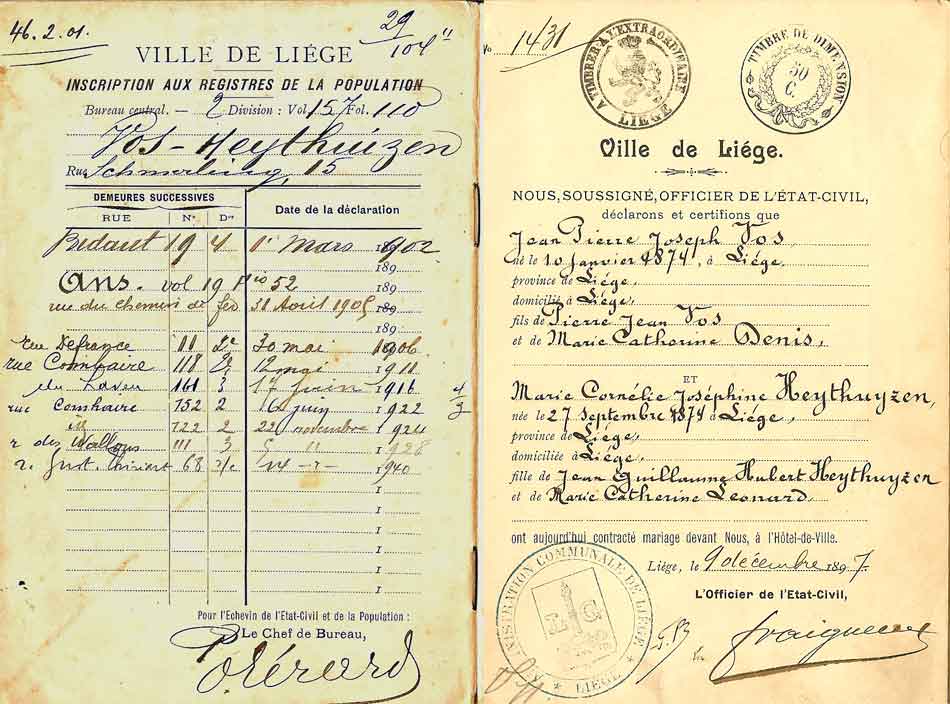 46.2.01.
29
104"
VILLE DE LIÉGE
INSCRIPTION AUX REGISTRES DE LA POPULATION
Bureau central. — 2 Division : Vol 157 Fol. 110
Vos-Heythuizen
Rue Schmerling, 15
DEMEURES SUCCESSIVES
RUE N° Don Date de la déclaration
Bedaret 19 4 1r Mars 1902
189
Ans. vol 19 52 189
rue du chemin de fer 31 Août 1905 189
189
rue Defrance 11 2e 30 mai 1906
rue Comhaire 118 2e 12 mai 1911
du Laveu 161 3 17 juin 1916
rue Comhaire 152 2 16 juin 1922
122 2 22 novembre 1924
r des Wallons 111 3 1928
68 1940
1
1
1
1
1
Pour l'Echevin de l'Etat-Civil et de la Population :
Le Chef de Bureau,
No 1431
A TIMBRER A L'EXTRAORDINAIRE
LIÉGE
TIMBRE DE DIMENSION
50
C.
Ville de Liége.
NOUS, SOUSSIGNÉ, OFFICIER DE L'ÉTAT-CIVIL,
déclarons et certifions que
Jean Pierre Joseph Vos,
né le 10 janvier 1874, à Liége,
province de Liége,
domicilié à Liége,
fils de Pierre Jean Vos
et de Marie Catherine Denis,
ET
Marie Cornélie Joséphine Heythuyzen,
née le 27 septembre 1874 à Liége,
province de Liége,
domiciliée à Liége,
fille de Jean Guillaume Hubert Heythuyzen
et de Marie Catherine Leonard,
ont aujourd'hui contracté mariage devant Nous, à l'Hôtel-de-Ville.
Liége, le 9 décembre 1897.
L'Officier de l'Etat-Civil,
ADMINISTRATION COMMUNALE DE LIÉGE
L G
LIÉGE